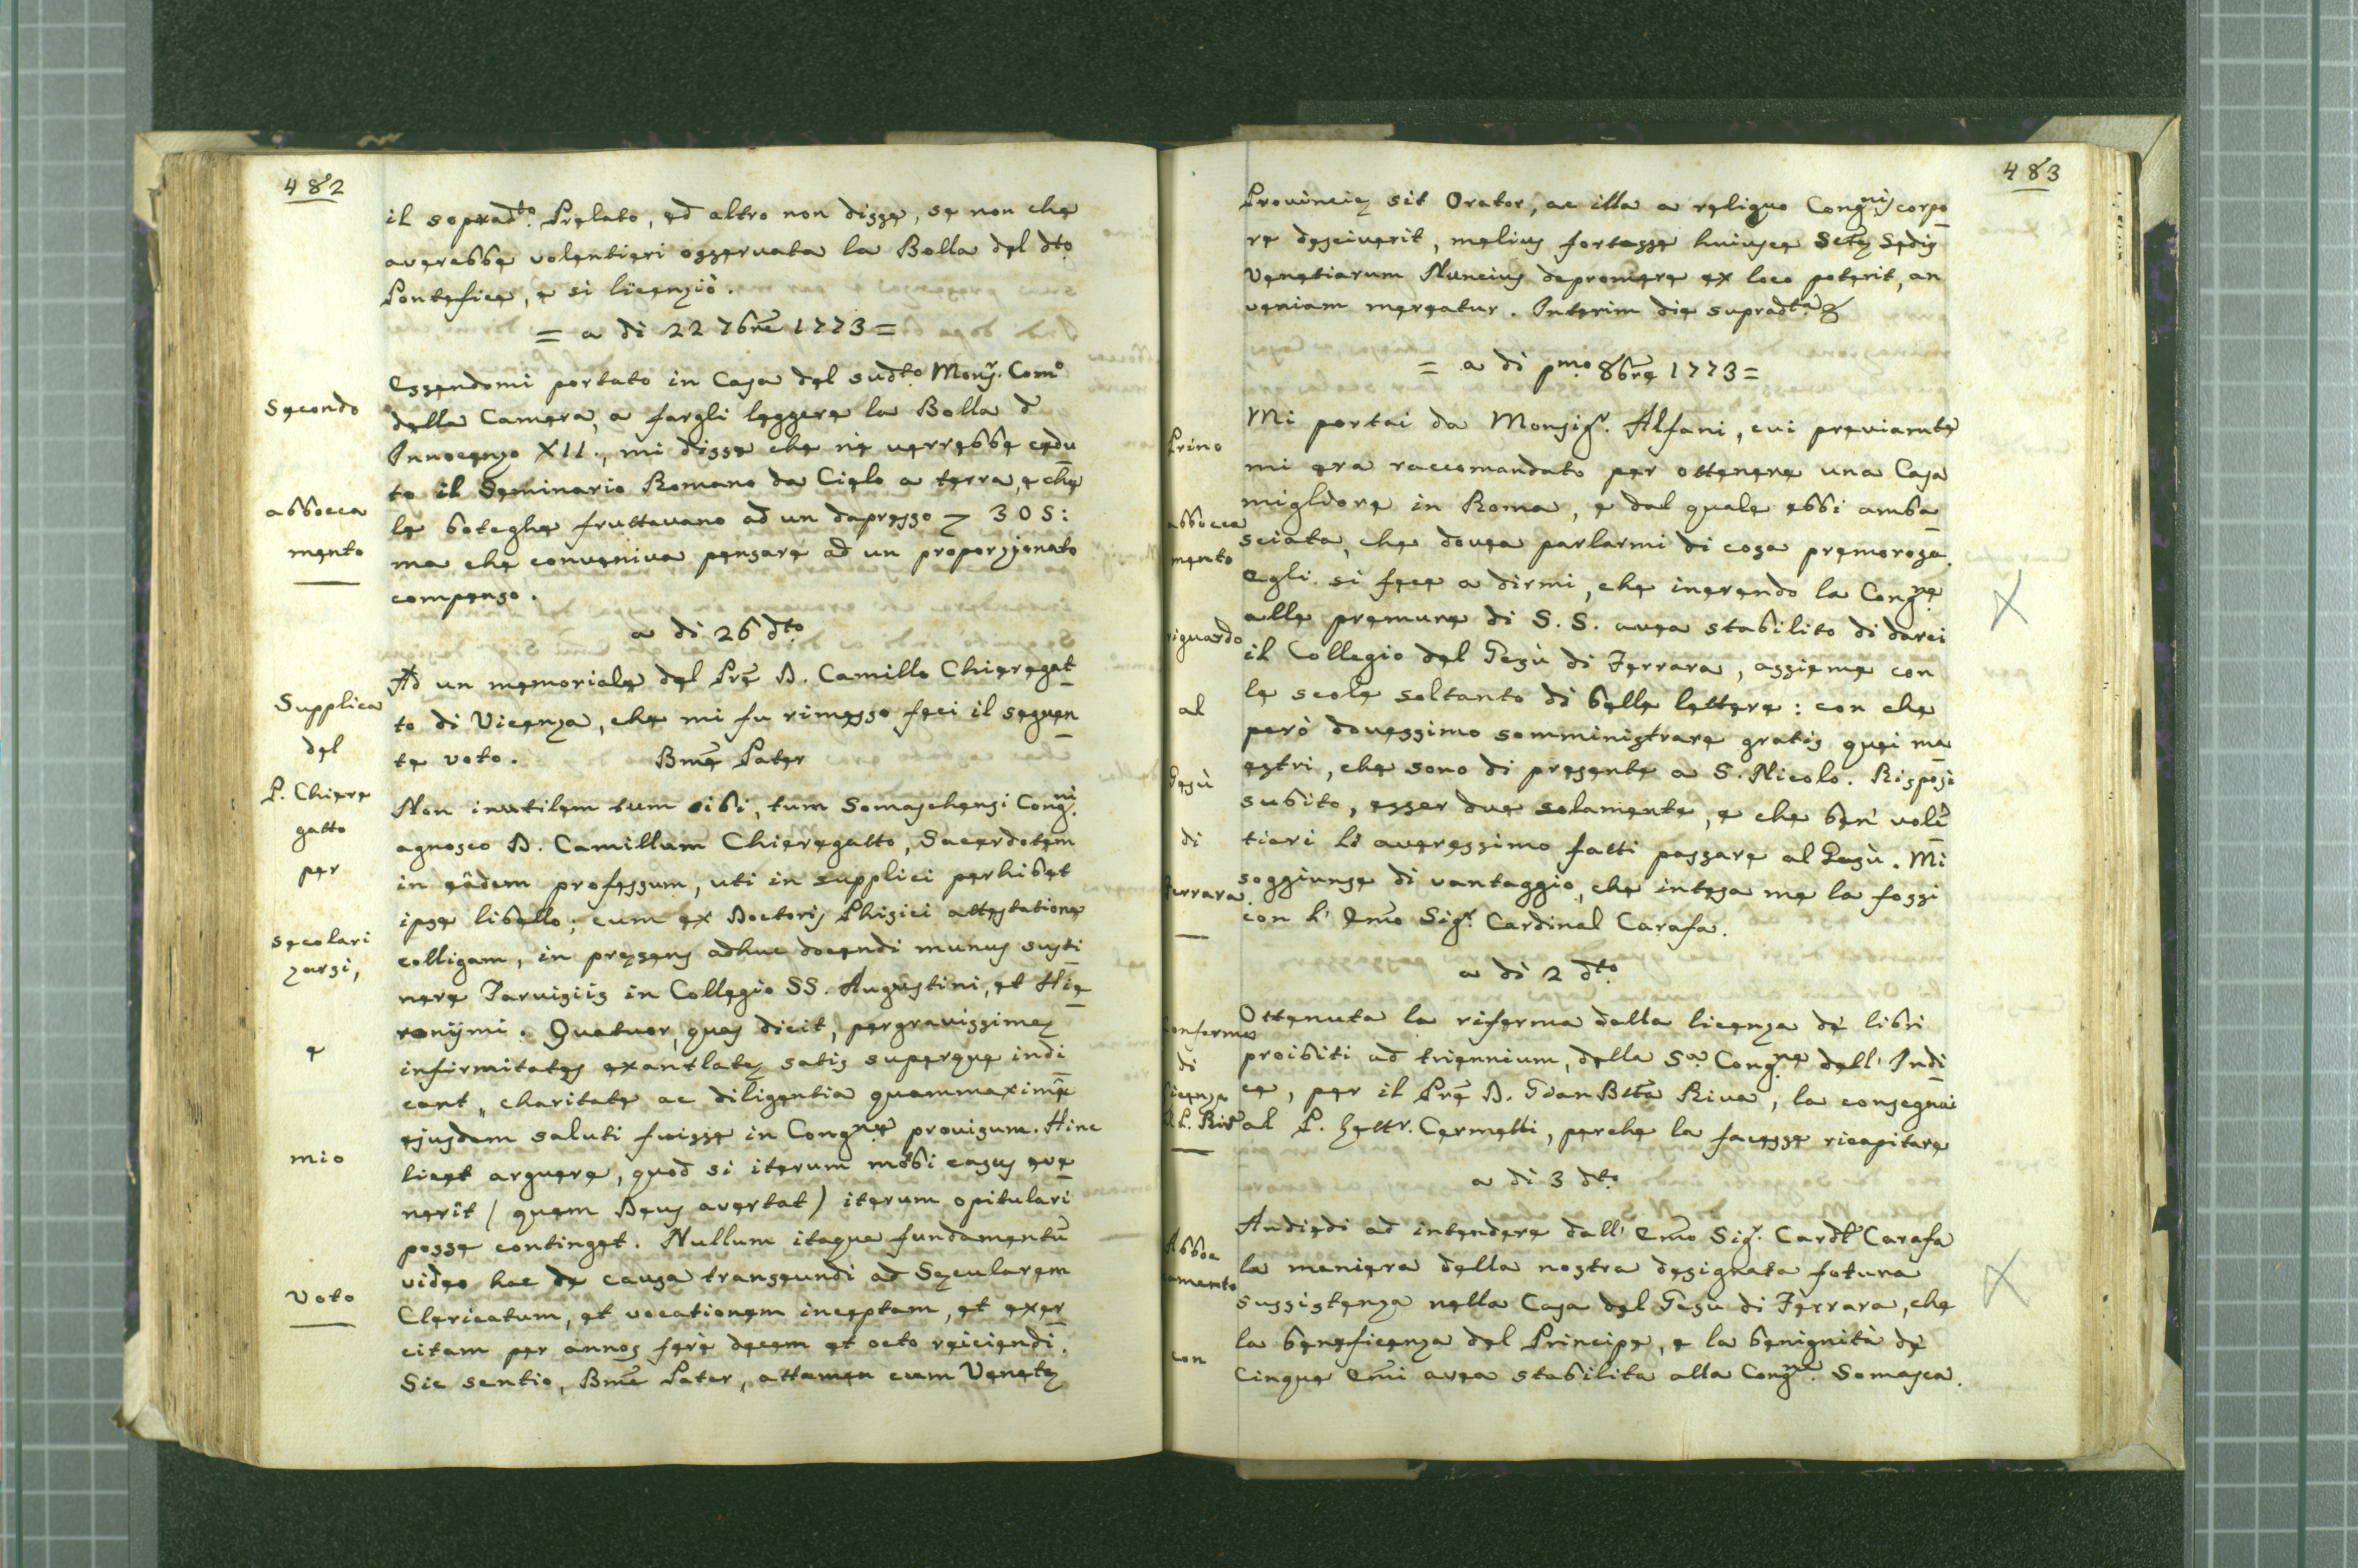 482
il sopradto. Prelato, ed altro non disse, se non che
averebbe volentieri osservata la Bolla del dto.
Pontefice, e si licenziò.
= a di 22 7bre 1773 =
Secondo
abbocca
mento
Essendomi portato in Casa del sudto. Monsr. Como
della Camera, a fargli leggere la Bolla d
Innocenzo XII., mi disse che ne verrebbe cedu
to il Seminario Romano da Cielo a terra, e che
le boteghe fruttavano ad un dapresso 305:
ma che conveniva pensare ad un proporzionato
compenso.
a di 26 dto.
Supplica
del
P. Chiere
gatto
per
secolari
zarsi,
e
mio
voto
Ad un memoriale del Prē D. Camillo Chieregat
to di Vicenza, che mi fu rimesso feci il seguen
te voto. Bmē Pater
Non inutilem tum sibi, tum Somaschensi Congni.
agnosco D. Camillum Chieregatto, Sacerdotem
in eâdem professum, uti in supplici perhibet
ipse libello; cum ex Doctoris Phisici attestatione
colligam, in præsens adhuc docendi munus susti
nere Tarvisiis in Collegio SS. Augustini, et Hie
ronijmi. Quatuor, quas dicit, pergravissimæ
infirmitates exantlatæ satis superque indi
cant, charitate ac diligentia quammaximê
ejusdem saluti fuisse in Congne. provisum. Hinc
licet arguere, quod si iterum morbi casus eve
nerit ( quem Deus avertat ) iterum opitulari
posse continget. Nullum itaque fundamentū
video hac de causa transeundi ad Sæcularem
Clericatum, et vocationem inceptam, et exer
citam per annos ferè decem et octo reiciendi.
Sic sentio, Bmē Pater, attamen cum Venetæ
483
Provinciæ sit Orator, ac illa a reliquo Congnis corpo
re desciverit, melius fortasse huiusce Sctæ Sedis
Venetiarum Nuncius depromere ex loco poterit, an
veniam mereatur. Interim die supradta. &
= a di pmo. 8bre 1773 =
Primo
abbocca
mento
riguardo
al
Gesù
di
Ferrara.
Mi portai da Monsigr. Alfani, cui previamte
mi era raccomandato per ottenere una Casa
migliore in Roma, e dal quale ebbi amba
sciata, che dovea parlarmi di cosa premorosa.
Egli si fece a dirmi, che inerendo la Congne.
alle premure di S. S. avea stabilito di darci
il Collegio del Gesù di Ferrara, assieme con
le scole soltanto di belle lettere: con che
però dovessimo somministrare gratis quei ma
estri, che sono di presente a S. Nicolo. Risposi
subito, esser due solamente, e che ben volē
tieri li averessimo fatti passare al Gesù. Mi
soggiunse di vantaggio, che intesa me la fossi
con l' Emo Sigr. Cardinal Carafa.
a di 2 dto.
Conferma
di
licenza
Ottenuta la riferma della licenza de' libri
proibiti ad triennium, della Sa. Congne. dell' Indi
ce, per il Prē D. Gian Btta Riva, la consegnai
al P. Lettr. Cermelli, perche la facesse ricapitare
a di 3 dto.
Abboc
camento
con
Andiedi ad intendere dall' Emo Sigr. Cardl Carafa
la maniera della nostra designata fotura
sussistenza nella Casa del Gesù di Ferrara, che
la beneficenza del Principe, e la benignità de'
Cinque Emi avea stabilita alla Congne. Somasca.